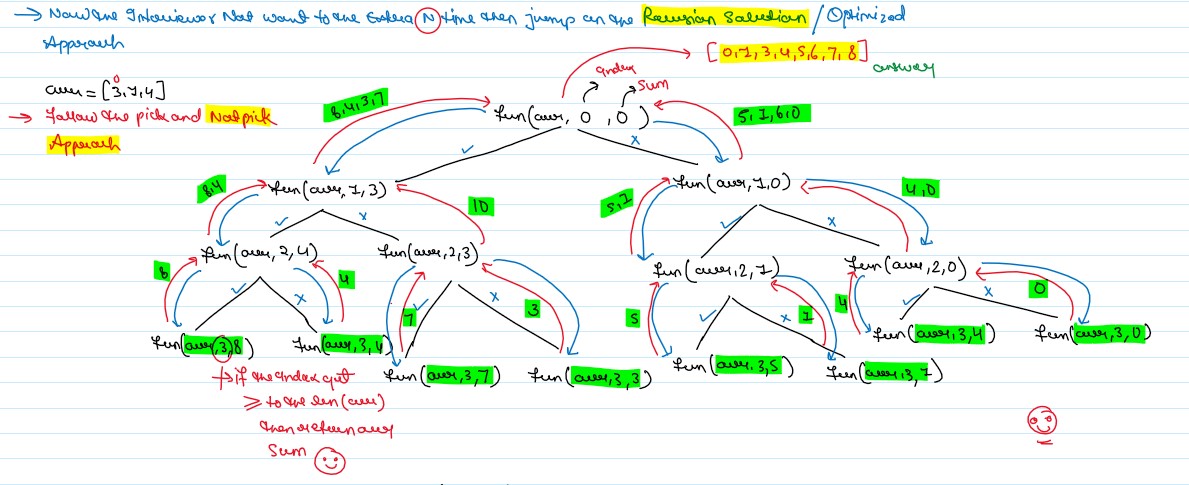 → Now the Interviewer Not want to the Extra N time then jump on the Recursion Solution / Optimized
Approach
[0,1,3,4,5,6,7,8]
answer
0
arr = [3,1,4]
→ Follow the pick and Not pick
Approach
Index
Sum
8,4,3,7
fun(arr, 0, 0)
5,1,6,0
✓
x
8,4
fun(arr,1,3)
10
5,1
fun(arr,1,0)
4,0
✓
x
✓
x
fun(arr,2,4)
fun(arr,2,3)
fun(arr,2,1)
fun(arr,2,0)
8
✓
x
4
7
✓
x
3
5
✓
x
1
4
✓
x
0
fun(arr,3,8)
fun(arr,3,4)
fun(arr,3,7)
fun(arr,3,3)
fun(arr,3,5)
fun(arr,3,1)
fun(arr,3,4)
fun(arr,3,0)
→ if the index get
≥ to the len(arr)
then return our
Sum